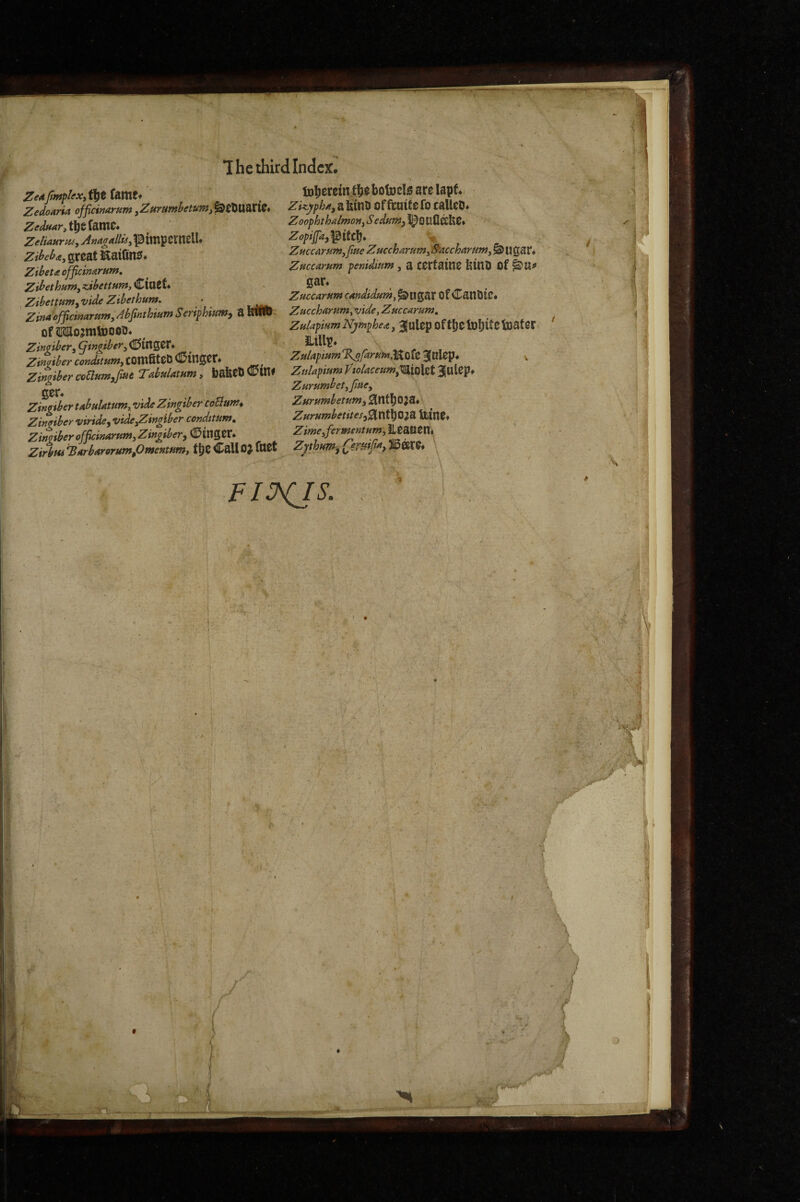 The third Index.
Zea simplex, the same.
Zedoaria officinarum, Zurumbetum, Seduarie.
Zeduar, the same.
Zeliaurus, Anagallis, Pimpernell.
Zibebæ, great Raisins.
Zibetæ officinarum.
Zibethum, zibettum, Ciuet.
Zibettum, vide Zibethum.
Zina officinarum, Absinthium Seriphium, a kind
of Wormwood.
Zingiber, Gingiber, Ginger.
Zingiber conditum, comfited Ginger.
Zingiber coctum, siue Tabulatum, baked Gin-
ger.
Zingiber tabulatum, vide Zingiber coctum.
Zingiber viride, vide, Zingiber conditum.
Zingiber officinarum, Zingiber, Ginger.
Zirbus Barbarorum, Omentum, the Call or suet
wherein the bowels are lapt.
Zizypha, a kind of fruite so called.
Zoophthalmon, Sedum, Housleeke.
Zopissa, Pitch.
Zuccarum, siue Zuccharum, Saccharum, Sugar.
Zuccarum penidium, a certaine kind of Su-
gar.
Zuccarum candidum, Sugar of Candie.
Zuccharum, vide, Zuccarum.
Zulapium Nympheæ, Julep of the white water
Lilly.
Zulapium Rosarum, Rose Julep.
Zulapium Violaceum, Violet Julep.
Zurumbet, siue,
Zurumbetum, Anthora.
Zurumbetites, Anthora wine.
Zime, fermentum, Leauen.
Zythum, Ceruisia, Beere.
FINIS.